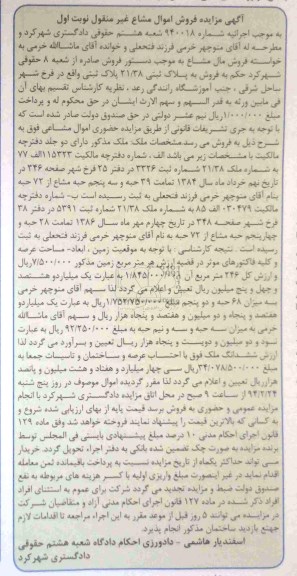 آگهی مزایده فروش اموال مشاع غیر منقول نوبت اول
به موجب اجرائیه شماره ۹۴۰۰۱۸ شعبه هشتم حقوقی دادگستری شهرکرد و
مطرحه له آقای منوچهر خرمی فرزند فتحعلی و خوانده آقای ماشاالله خرمی به
خواسته فروش مال مشاع به موجب دستور فروش صادره از شعبه ۸ حقوقی
شهرکرد حکم به فروش به پلاک ثبتی ۲۱/۳۸ پلاک ثبتی واقع در فرخ شهر
ساحل شرقی ، جنب آموزشگاه رانندگی رعد ، نظریه کارشناس تقسیم بهای آن
فی مابین ورثه به قدر السهم و سهم الارث ایشان در حق محکوم له و پرداخت
مبلغ ۱/۰۰۰/۰۰۰ریال نیم عشر دولتی در حق صندوق دولت صادر شده است که
با توجه به جری تشریفات قانونی از طریق مزایده حضوری اموال مشاعی فوق به
شرح ذیل به فروش می رسد مشخصات ملک ملک مذکور دارای دو جلد دفترچه
مالکیت با مشخصات زیر می باشد الف ، شماره دفترچه مالکیت ۱۱۵۳۲۳الف ۷۷
به شماره ملک ۲۱/۳۸ شماره ثبت ۳۳۲۶ در دفتر ۲۵ فرخ شهر صفحه ۳۴۶ در
تاریخ نهم خرداد ماه سال ۱۳۸۴ تمامت ۳۹ حبه و سه پنجم حبه مشاع از ۷۲ حبه
بنام آقای منوچهر خرمی فرزند فتحعلی به ثبت رسیده است ب- شماره دفترچه
مالکیت ۲۰۴۷۹۰ الف ۸۵ به شماره ملک ۲۱/۳۸ شماره ثبت ۵۳۹۱ در دفتر ۳۸
فرخ شهر صفحه ۳۴۸ در تاریخ چهارم مهر ماه سال ۱۳۸۶ تمامت ۲۸ حبه و
چهارپنجم حبه مشاع از ۷۲ حبه به نام آقای منوچهر خرمی فرزند فتحعلی به ثبت
رسیده است . نتیجه کارشناسی : با توجه به موقعیت زمین ، ابعاد- مساحت عرصه
و کلیه فاکتورهای موثر در قضیه ارزش هر متر مربع زمین مذکور ۷/۵۰۰/۰۰۰ریال
و ارزش کل ۲۴۶ متر مربع آن ۱/۸۴۵/۰۰۰/۰۰۰ به عبارت یک میلیارد و هشتصد
و چهل و پنج میلیون ریال تعیین و اعلام می گردد لذا سهم آقای منوچهر خرمی
به میزان ۶۸ حبه و دو پنجم مبلغ ۱/۷۵۲/۷۵۰/۰۰۰ریال به عبارت یک میلیارد و
هفتصد و پنجاه و دو میلیون و هفتصد و پنجاه هزار ریال و سهم آقای ماشاالله
خرمی به میزان سه حبه و سه و نیم حبه به مبلغ ۹۲/۲۵۰/۰۰۰ ریال به عبارت
نود و دو میلیون و دویست و پنجاه هزار ریال تعیین و برآورد می گردد لذا
ارزش ششدانگ ملک فوق با احتساب عرصه و ساختمان و تاسیسات جمعا به
مبلغ ریال سی چهار میلیارد و هفتاد و هشت میلیون و پانصد
هزارریال تعیین و اعلامی می گردد لذا مقرر گردیده اموال موصوف در روز پنج شنبه
۹۴/۲/۲۴ از ساعت ۹ صبح در محل اتاق مزایده دادگستری شهرکرد با انجام
مزایده عمومی و حضوری به فروش برسد قیمت پایه از بهای ارزیابی شده شروع و
به کسانی که بالاترین قیمت را پیشنهاد نمایند فروخته خواهد شد وفق ماده ۱۲۹
قانون اجرای احکام مدنی ۱۰ درصد مبلغ پیشنهادی بایستی فی المجلس توسط
برنده مزایده به صورت چک تضمین شده بانکی به دفتر اجراء تحویل گردد. خریدار
می تواند حداکثر یکماه از تاریخ مزایده نسبت به پرداخت باقیمانده ثمن معامله
اقدام نماید در غیر اینصورت مبلغ واریزی اولیه با کسر هزینه های مربوطه به نفع
صندوق دولت ضبط و مزایده تجدید می گردد شرکت برای عموم به استثنای افراد
افراد ذکر شده در ماده ۱۲۷ قانون اجرای احکام مدنی آزاد و متقاضیان شرکت
در مزایده می توانند ۵ روز قبل از موعد مقرر به این اجراء مراجعه تا اقدامات لازم
جهت بازدید ساختمان مذکور انجام پذیرد.
اسفندیار هاشمی - دادورزی احکام دادگاه شعبه هشتم حقوقی
دادگستری شهرکرد